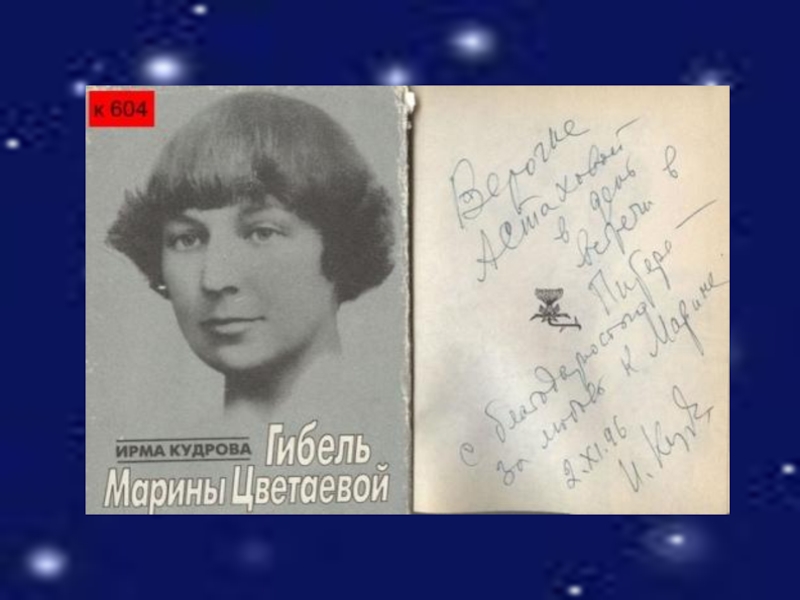 к 604
ИРМА КУДРОВА
Гибель
Марины Цветаевой
Верочке
Астаховой
в день
встречи в
Питере —
с благодарностью
за любовь к Марине.
2.XI.96
И. Кудр